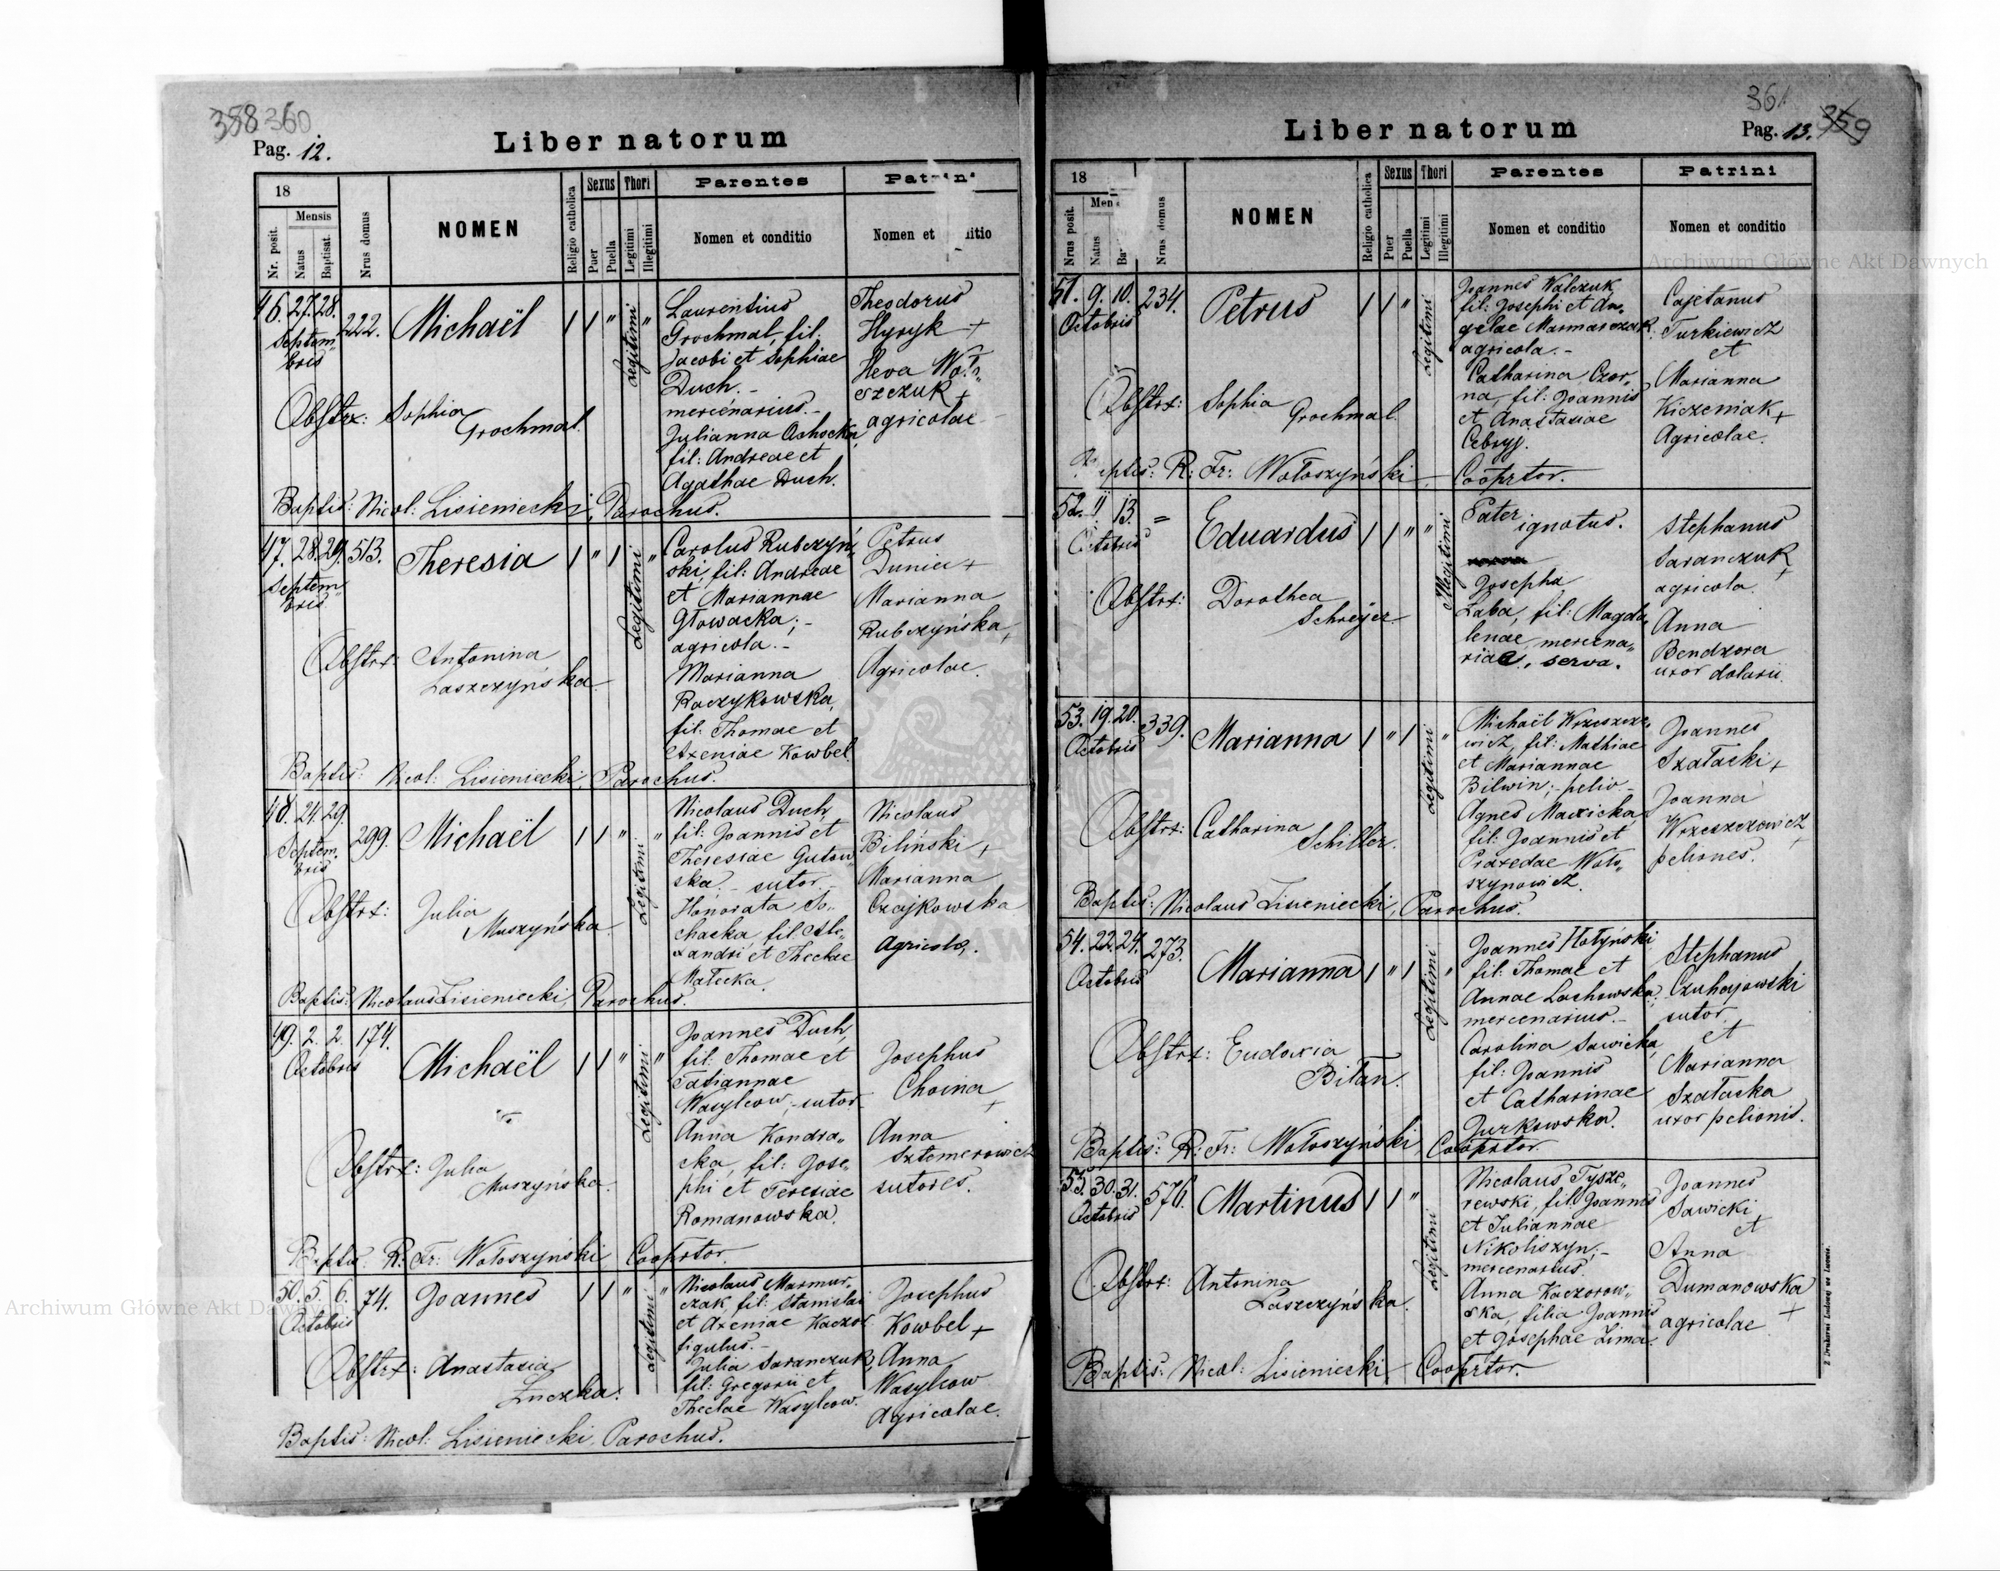 358 360
Pag. 12.
Liber natorum
18
Mensis
Nr. posit.
Natus
Baptisat.
Nrus domus
NOMEN
Religio catholica
Sexus
Puer
Puella
Thori
Legitimi
Illegitimi
Parentes
Nomen et conditio
Patrini
Nomen et ditio
46. 27. 28. 222. Michaël 1 1 " Legitimi "
Septem„
bris
Obstrx: Sophia
Grochmal.
Laurentius
Grochmal, fil:
Jacobi et Sophiae
Duch. -
mercenarius. -
Julianna Ochocka,
fil: Andreae et
Agathae Duch.
Theodorus
Hyryk +
Heva Woło„
szczuk +
agricolae
Baptis: Nicol: Lisieniecki, Parochus.
47. 28. 29. 513. Theresia 1 " 1 Legitimi "
Septem„
bris
Obstrx: Antonina
Laszczyńska.
Carolus Rubczyń„
ski, fil: Andreae
et Mariannae
Głowacka; -
agricola. -
Marianna
Raczykowska,
fil: Thomae et
Axeniae Kowbel.
Petrus
Duniec +
Marianna
Rubczyńska, +
Agricolae.
Baptis: Nicol: Lisieniecki, Parochus.
48. 24. 29. 299. Michaël 1 1 " Legitimi "
Septem„
bris
Obstrx: Julia
Muszyńska.
Nicolaus Duch,
fil: Joannis et
Theresiae Gutow„
ska. - sutor.
Honorata So„
chacka fil: Ale„
xandri et Theclae
Matecka.
Nicolaus
Biliński, +
Marianna
Czajkowska
Agricolae.
Baptis: Nicolaus Lisieniecki, Parochus.
49. 2. 2. 174. Michaël 1 1 " Legitimi "
Octobris
Obstrx: Julia
Muszyńska.
Joannes Duch,
fil: Thomae et
Tatiannae
Wasylcow, - sutor.
Anna Kondra„
cka, fil: Jose„
phi et Teresiae
Romanowska.
Josephus
Choina
+
Anna
Sztemerowicz
sutores.
Baptis: R: Fr: Wołoszyński Cooprtor.
50. 5. 6. 74. Joannes 1 1 " Legitimi "
Octobris
Obstrx: Anastasia
Łuczka.
Nicolaus Marmur„
czak fil: Stanislai
et Axeniae Kaczor
figulus. -
Julia Saranczuk,
fil: Gregorii et
Theclae Wasylcow.
Josephus
Kowbel +
Anna
Wasylcow
Agricolae.
Baptis: Nicol: Lisieniecki, Parochus.
361
Pag. 13. 359
Liber natorum
18
Mens
Nrus posit.
Natus
Ba
Nrus domus
NOMEN
Religio catholica
Sexus
Puer
Puella
Thori
Legitimi
Illegitimi
Parentes
Nomen et conditio
Patrini
Nomen et conditio
51. 9. 10. 234. Petrus 1 1 " Legitimi
Octobris
Obstrx: Sophia
Grochmal.
Joannes Walczuk
fil: Josephi et An„
gelae Marmarczuk.
agricola. -
Catharina Czor„
na, fil: Joannis
et Anastasiae
Cebryj.
Cajetanus
Turkiewicz
et
Marianna
Kiczeniak +
Agricolae.
eptis: R: Fr: Wołoszyński - Cooprtor.
52. 11 13. = Eduardus 1 1 " " Illegitimi
Octobris
Obstrx: Dorothea
Schreyer.
Pater
ignotus.
Josepha
Łaba, fil: Magda„
lenae, mercena„
riae, serva.
Stephanus
Saranczuk +
agricola
Anna
Bendzera
uxor doliarii.
53. 19. 20. 339. Marianna 1 " 1 Legitimi "
Octobris
Obstrx: Catharina
Schiller.
Michaël Wrzeszcze„
wicz, fil: Mathiae
et Mariannae
Bilwin; - pelio -
Agnes Macxicka,
fil: Joannis et
Praxedae Woło„
szynowicz.
Joannes
Szałacki, +
Joanna
Wrzeszczowicz +
peliones.
Baptis: Nicolaus Lisieniecki, Parochus.
54. 22. 24. 273. Marianna 1 " 1 Legitimi "
Octobris
Obstrx: Eudoxia
Bitan.
Joannes Hołyński
fil: Thomae et
Annae Lachowska,
mercenarius. -
Carolina Sawicka,
fil: Joannis
et Catharinae
Jurkowska.
Stephanus
Czuhajowski
sutor
et
Marianna
Szałacka
uxor pelionis.
Baptis: R: Fr: Wołoszyński, Cooprtor.
55. 30. 31. 576. Martinus 1 1 " Legitimi
Octobris
Obstrx: Antonina
Laszczyńska.
Nicolaus Tysze„
rewski, fil: Joannis
et Juliannae
Nikoliszyn; -
mercenarius
Anna Kaczorow„
ska, filia Joannis
et Josephae Zima.
Joannes
Sawicki
et
Anna
Dumanowska
+
agricolae
Baptis: Nicol: Lisieniecki - Cooprtor.
Z Drukarni Ludowej we Lwowie.
Archiwum Główne Akt Dawnych
Archiwum Główne Akt Dawnych